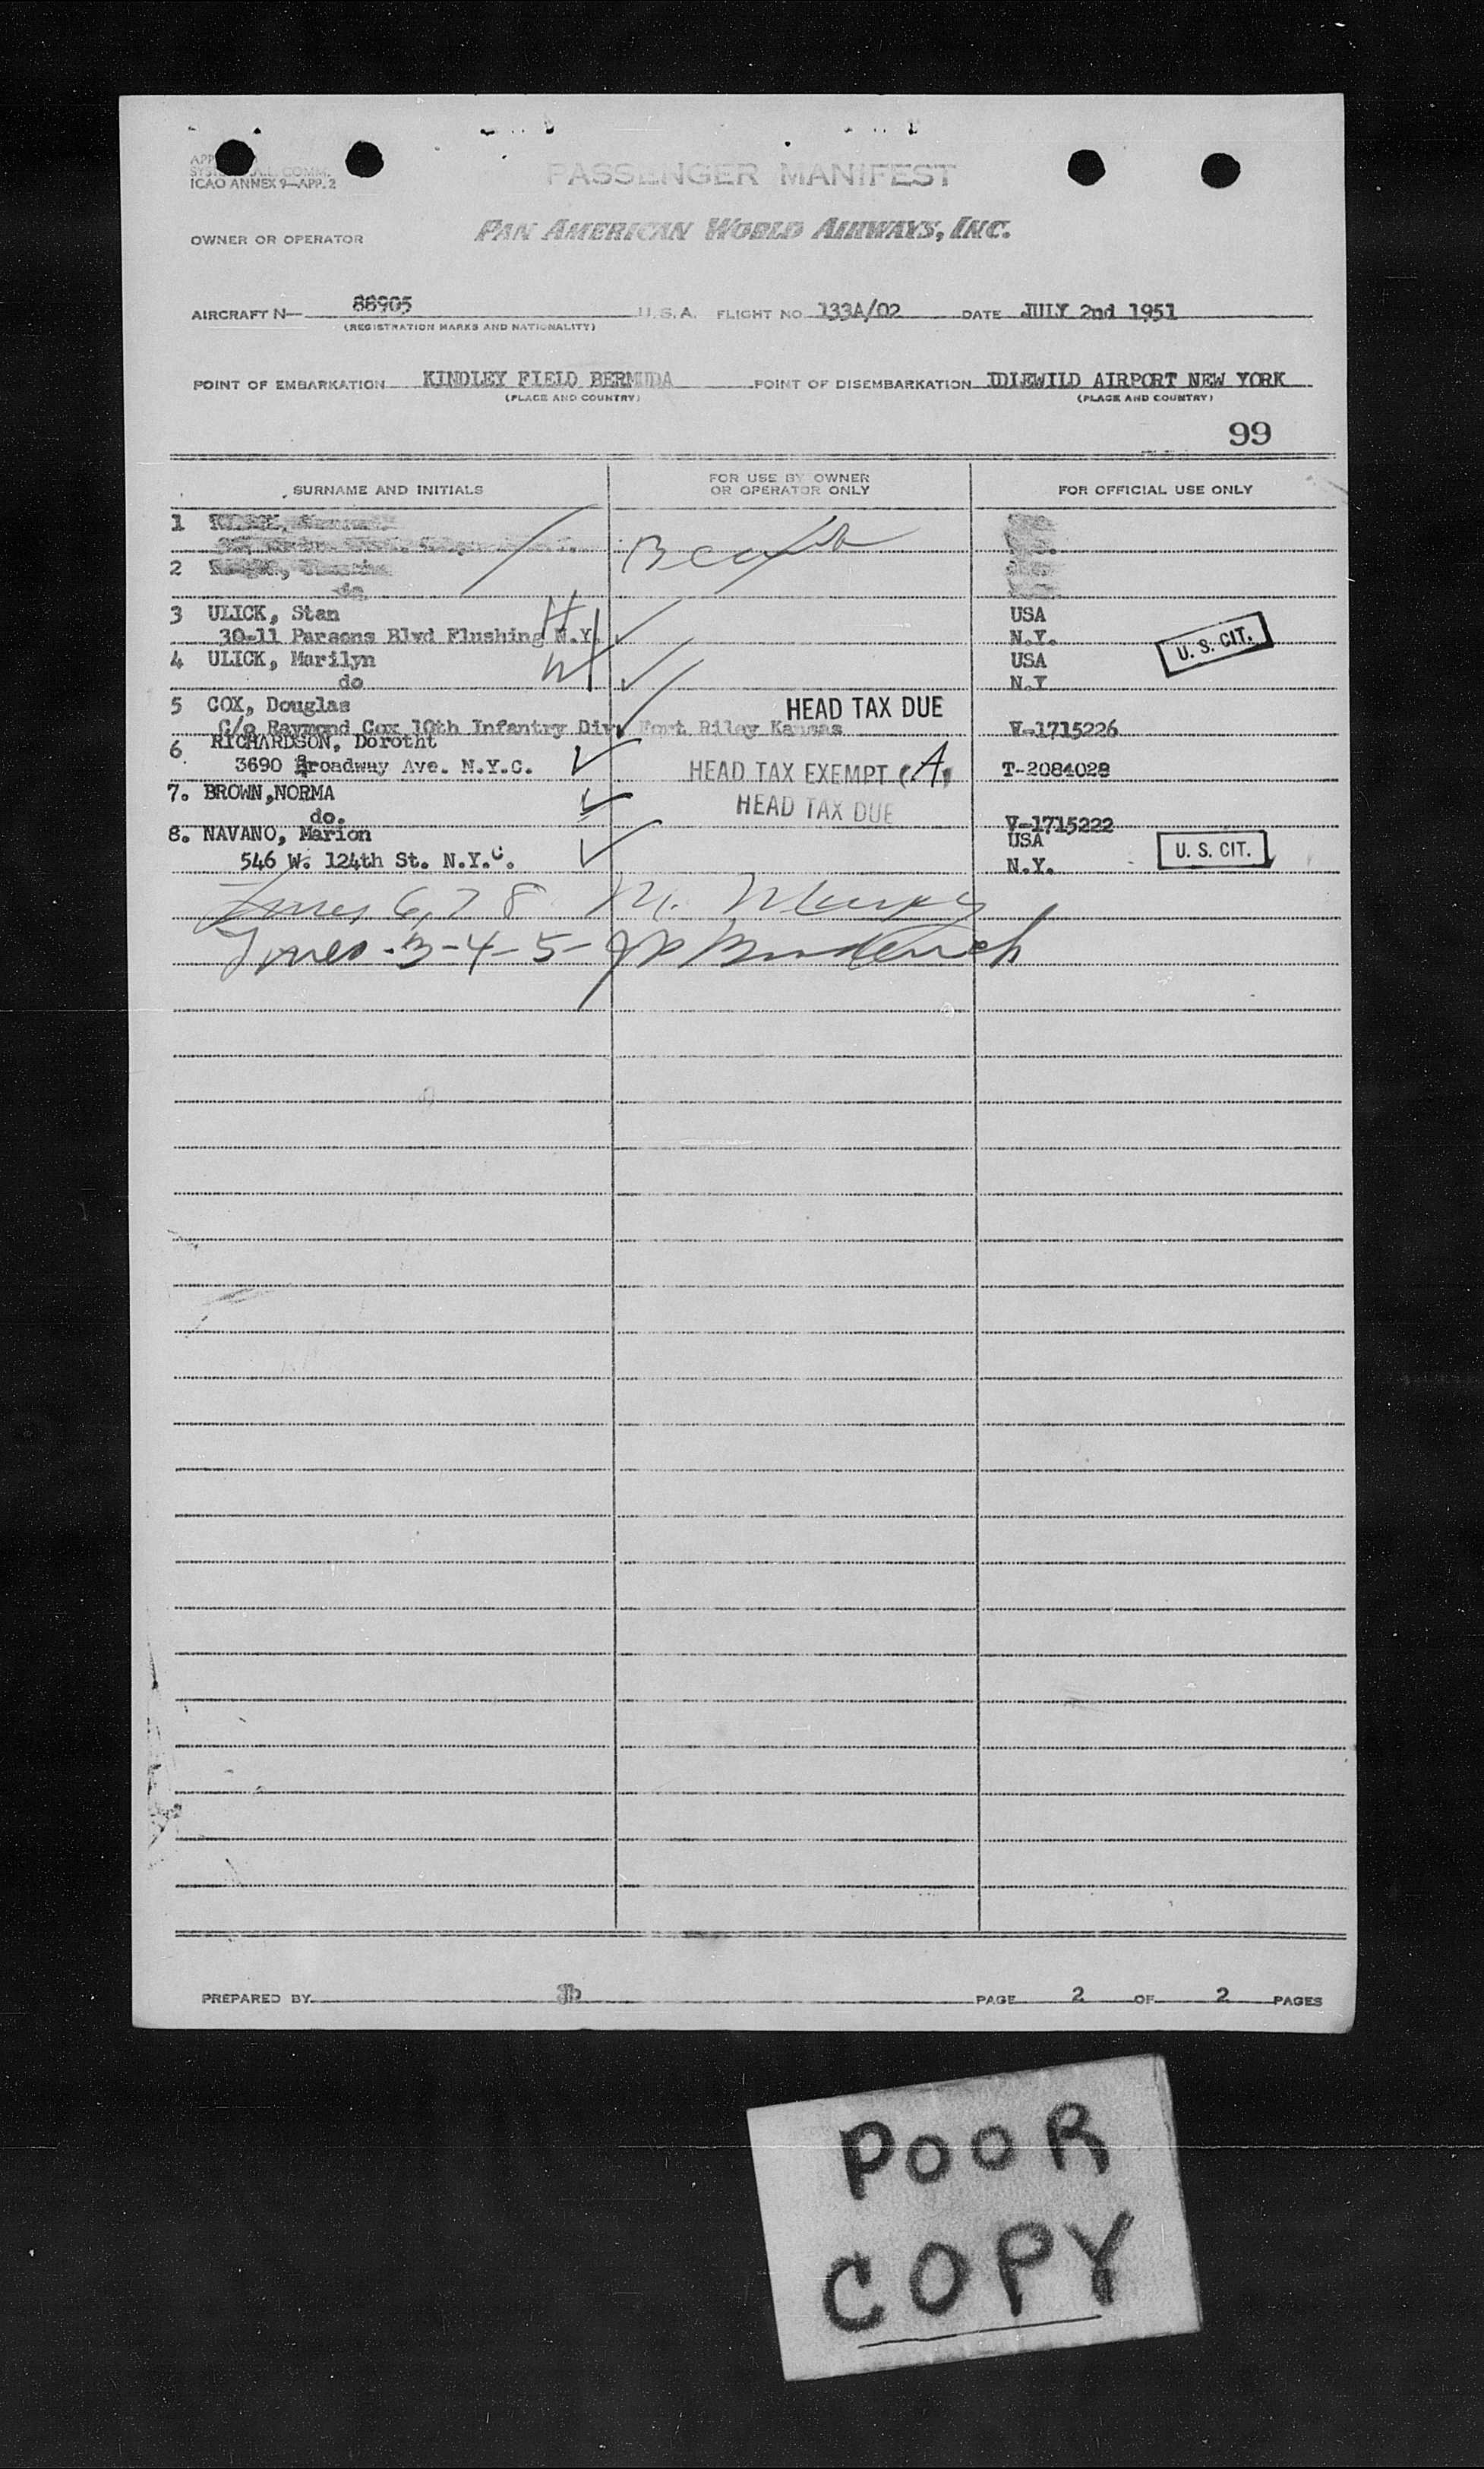 ICAO ANNEX 9—APP. 2
PASSENGER MANIFEST
OWNER OR OPERATOR PAN AMERICAN WORLD AIRWAYS, INC.
AIRCRAFT N— 88905 U.S.A. FLIGHT NO. 133A/02 DATE JULY 2nd 1951
(REGISTRATION MARKS AND NATIONALITY)
POINT OF EMBARKATION KINDLEY FIELD BERMUDA POINT OF DISEMBARKATION IDLEWILD AIRPORT NEW YORK
(PLACE AND COUNTRY) (PLACE AND COUNTRY)
99
SURNAME AND INITIALS FOR USE BY OWNER OR OPERATOR ONLY FOR OFFICIAL USE ONLY
1
2
do
3 ULICK, Stan USA
30-11 Parsons Blvd Flushing N.Y. N.Y. U. S. CIT.
4 ULICK, Marilyn USA
do N.Y
5 COX, Douglas HEAD TAX DUE
C/o Raymond Cox 10th Infantry Div. Fort Riley Kansas V-1715226
6 RICHARDSON, Dorotht
3690 Broadway Ave. N.Y.C. HEAD TAX EXEMPT (A) T-2084028
7. BROWN,NORMA HEAD TAX DUE
do. V-1715222
8. NAVANO, Marion USA
546 W. 124th St. N.Y.C. N.Y. U. S. CIT.
Lines 6, 7 8 M. Murphy
Lines -3-4-5-
PREPARED BY PAGE 2 OF 2 PAGES
POOR
COPY